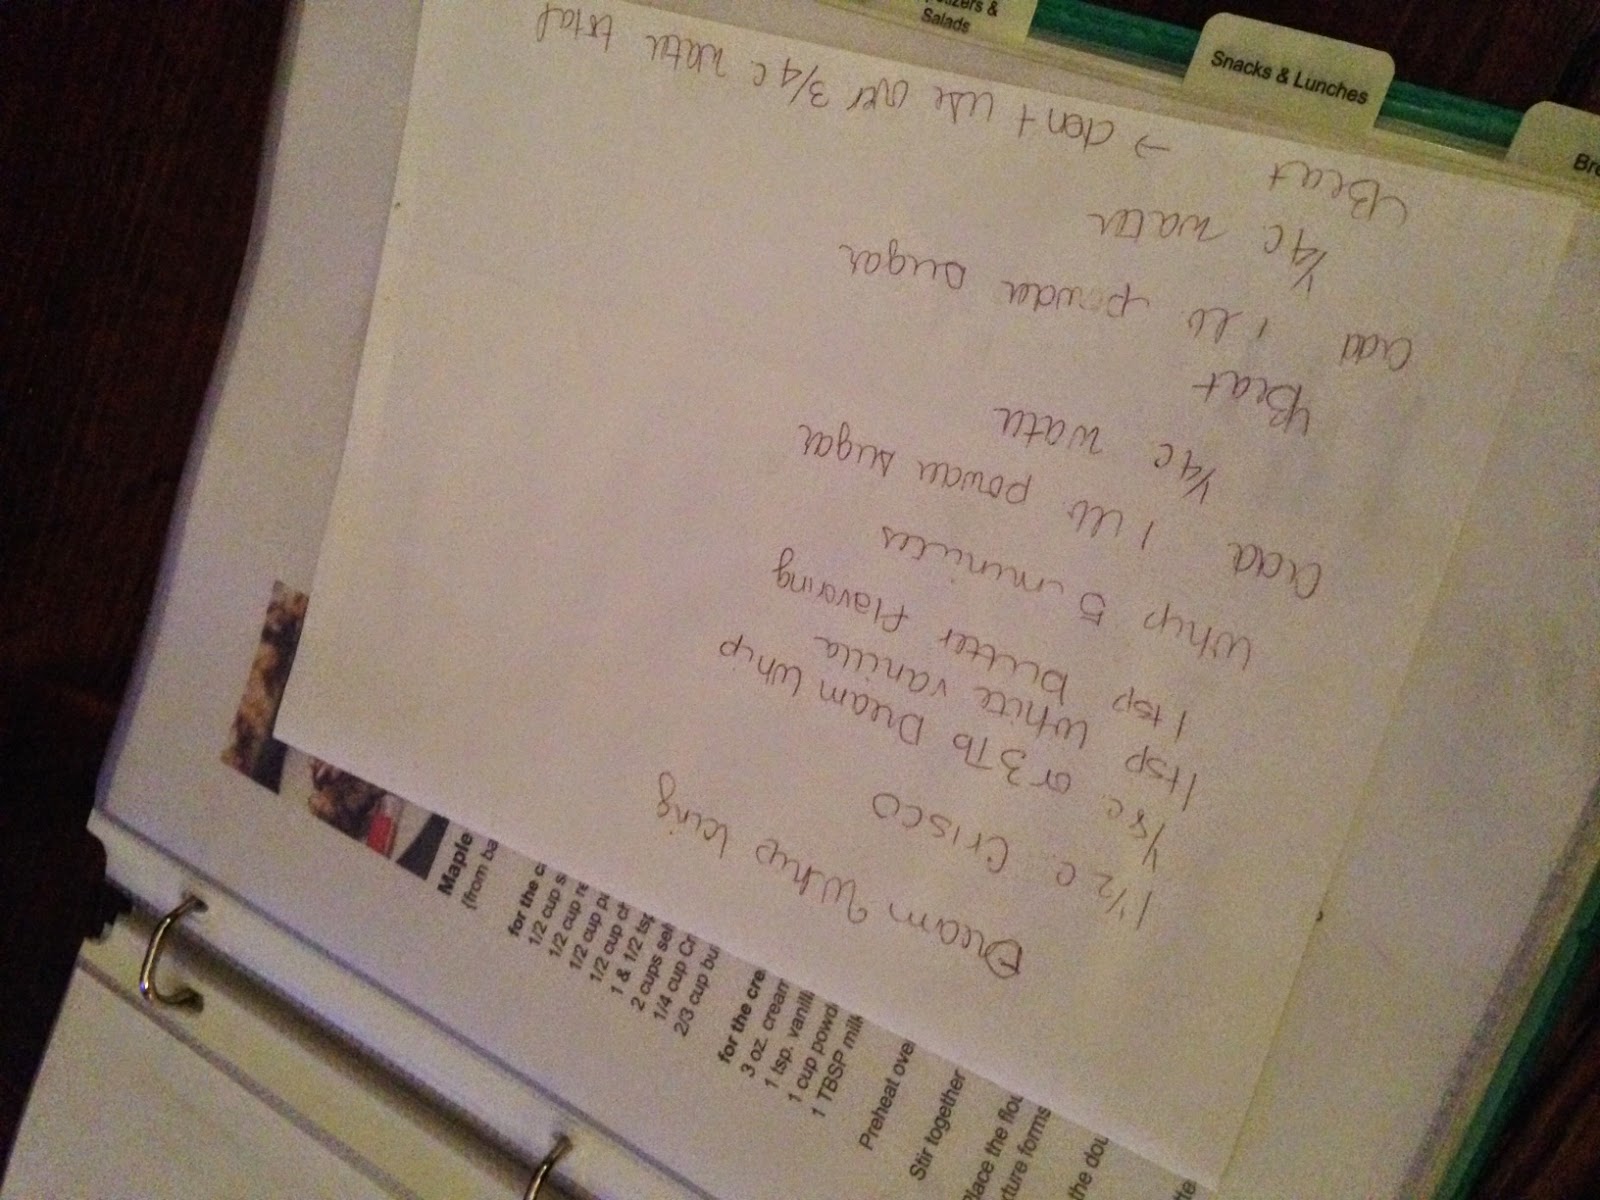 Dream Whip Icing
1 1/2 c. Crisco
1/8 c. or 3 Tb Dream Whip
1 tsp white vanilla
1 tsp butter flavoring
Whip 5 minutes
add 1 lb powder sugar
1/4 c. water
Beat
add 1 lb. powder sugar
1/4 c. water
Beat
→ don't use over 3/4 c water total
Salads
Snacks & Lunches
Maple
{from ba
for the c
1/2 cup s
1/2 cup re
1/2 cup p
1/2 cup ch
1 & 1/2 tsp
2 cups sel
1/4 cup Cr
2/3 cup bu
for the cre
3 oz. cream
1 tsp. vanill
1 cup powd
1 TBSP milk
Preheat ove
Stir together
lace the flou
ture forms
the dou